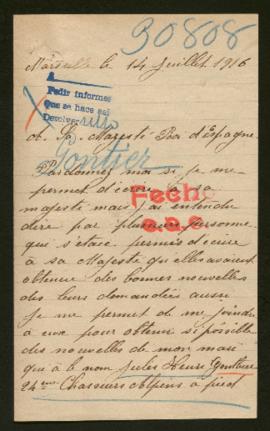 30808
Marseille le 14 Juillet 1916
Pedir informes
Que se hace así
Devolver
A Sa Majesté Roi d'Espagne
Gontier
Pardonnez moi si je me
permet d'écrire à sa
Fecho
majesté mais j'ai entendu
dire par plusieurs personne
qui s'étaie permis d'écrire
à sa Majesté qu'elles avaient
obtenue des bonnes nouvelles
des leurs demandées aussi
je me permet de me joindre
à eux pour obtenir si possible
des nouvelles de mon mari
qui à le nom Jules Henri Gontier
24eme Chasseurs Alpins à pied